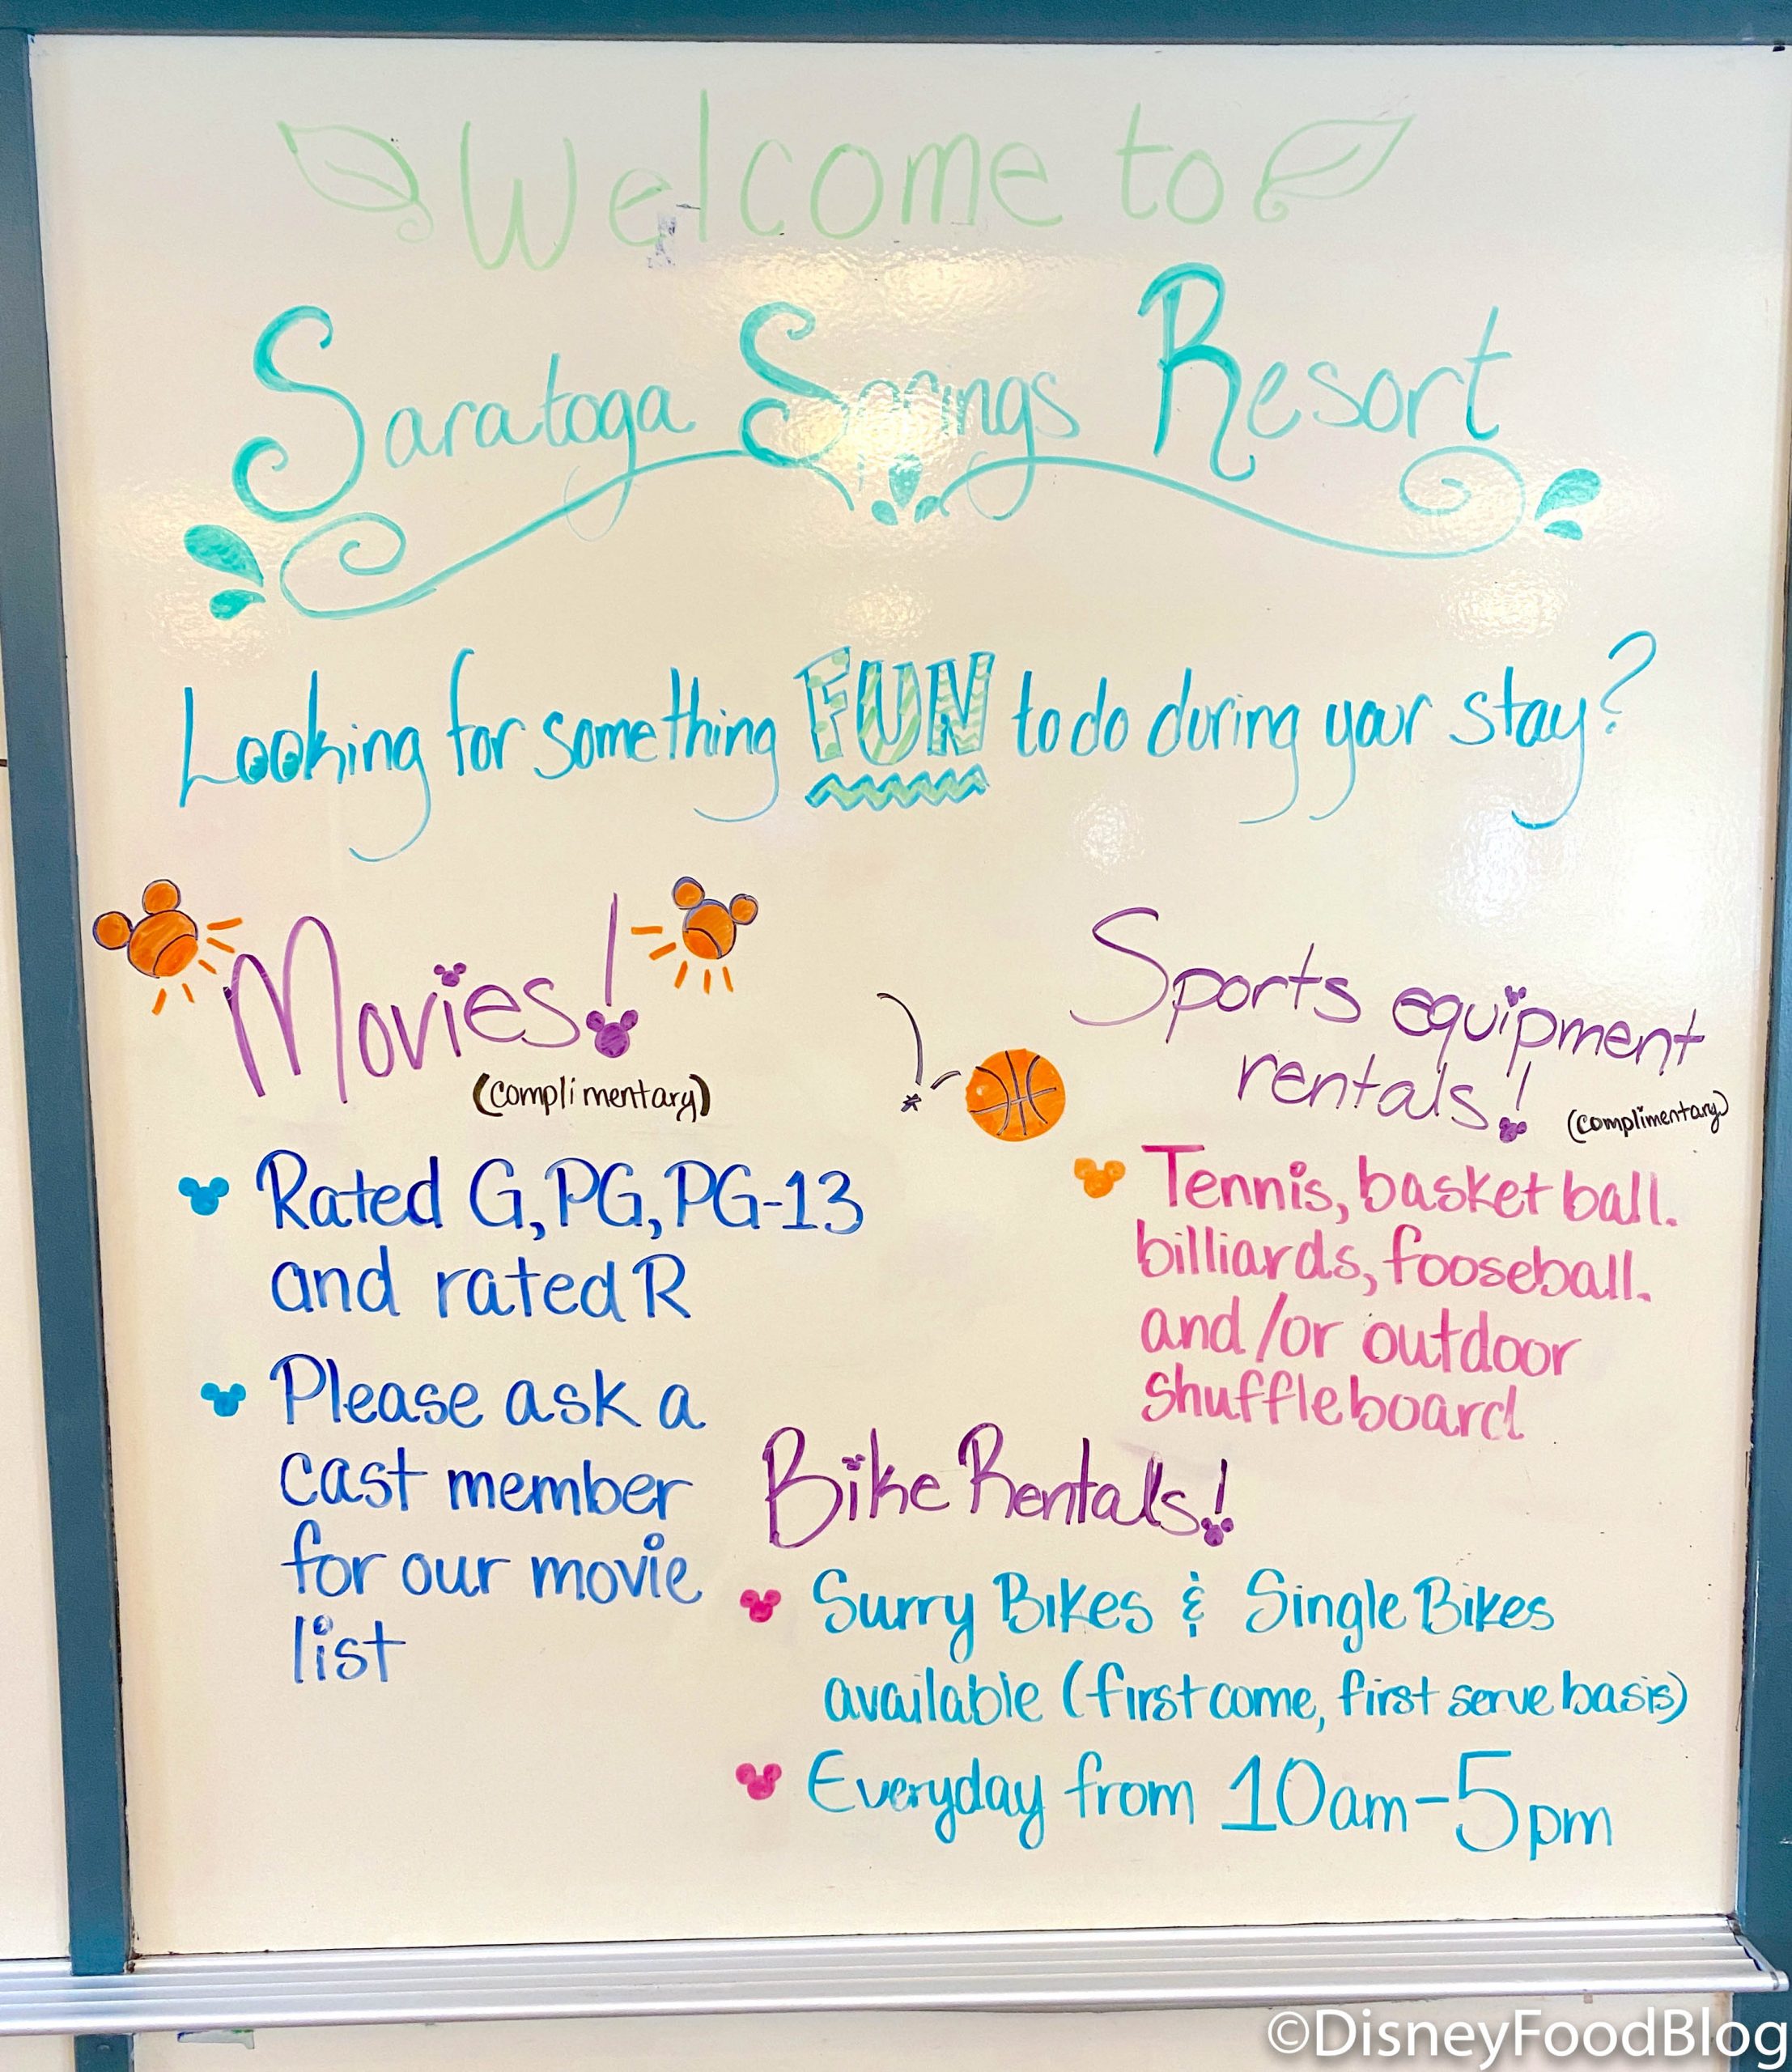 Welcome to
Saratoga Springs Resort
Looking for something FUN to do during your stay?
Movies!
(complimentary)
Rated G, PG, PG-13
and rated R
Please ask a
cast member
for our movie
list
Sports equipment
rentals!
(complimentary)
Tennis, basketball.
billiards, fooseball.
and/or outdoor
shuffleboard
Bike Rentals!
Surry Bikes & Single Bikes
available (first come, first serve basis)
Everyday from 10am-5pm
©DisneyFoodBlog